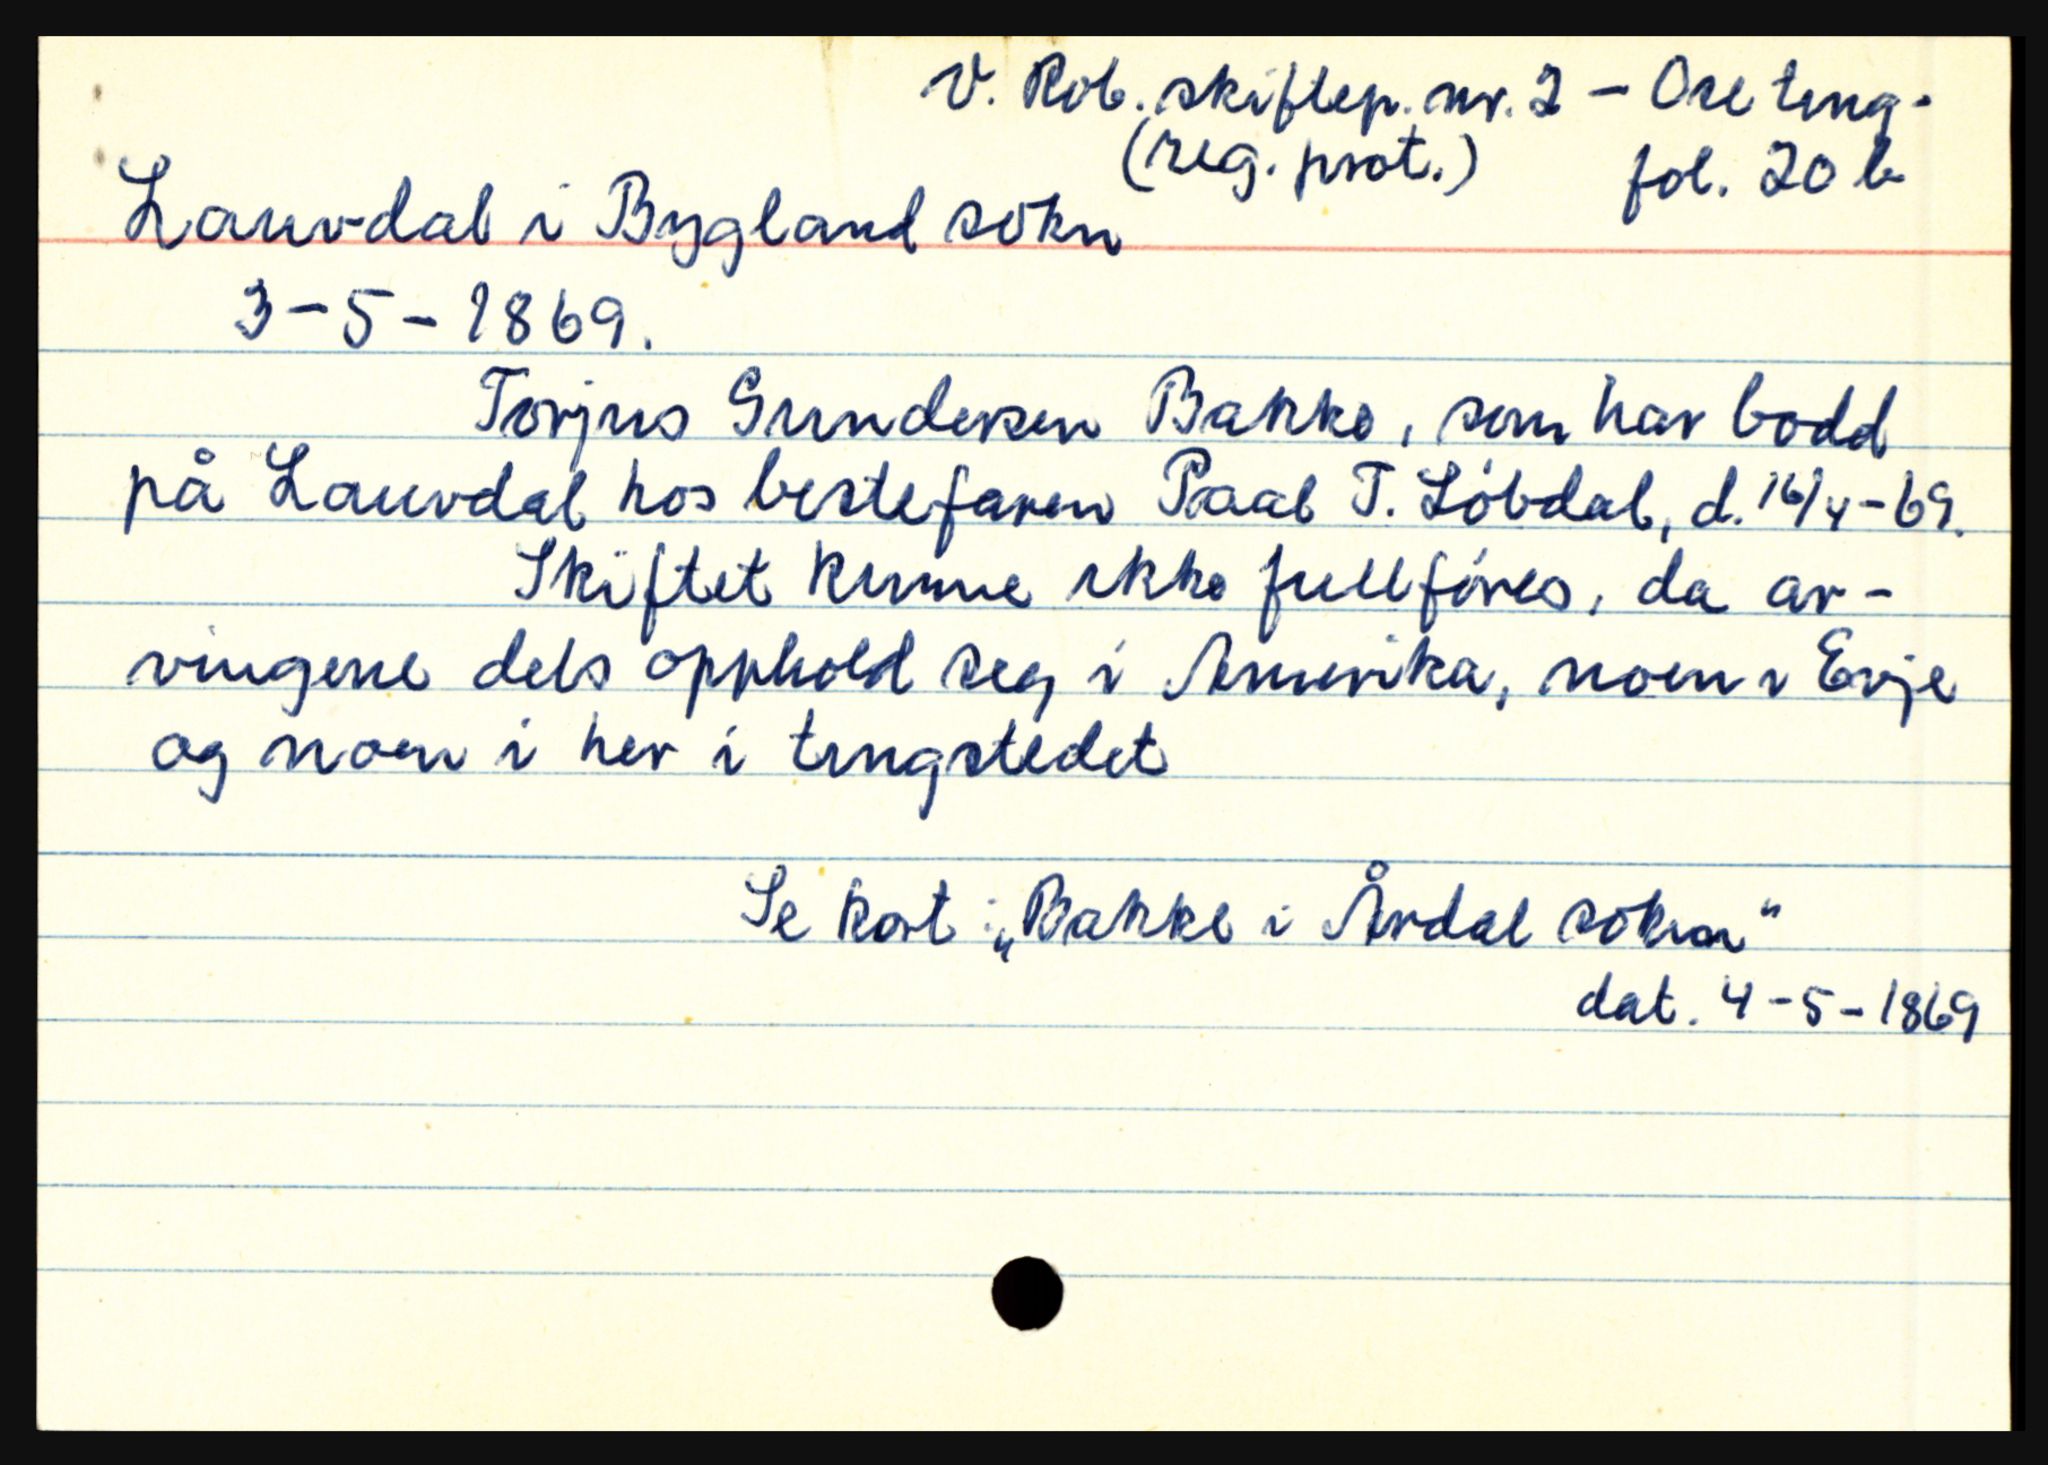 V. Rob. skiftep. nr. 2 – Ose ting-
(reg. prot.) fol. 20 b
Lauvdal i Bygland sokn
3-5-1869.
Torjus Gundersen Bakke, som har bodd
på Lauvdal hos bestefaren Paal T. Löbdal, d. 16/4-69.
Skiftet kunne ikke fullföres, da ar-
vingene dels opphold seg i Amerika, noen i Evje
og noen i her i tingstedet
Se kort i „Bakke i Årdal sokn"
dat. 4-5-1869